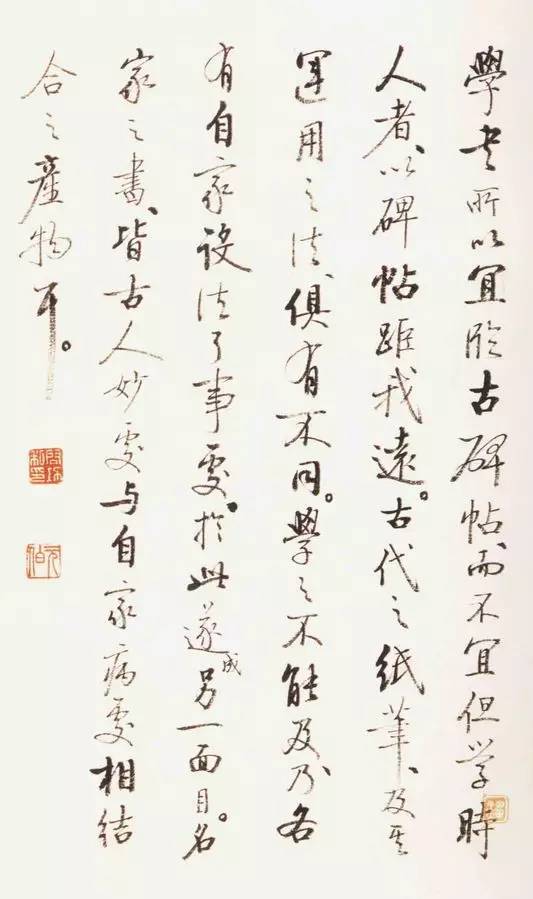 學書所以宜臨古碑帖而不宜但學時
人者、以碑帖距我遠。古代之紙筆、及其
運用之法、俱有不同。學之不能及、乃各
有自家設法了事處。於此遂成另一面目。名
家之書、皆古人妙處与自家病處相結
合之產物耳。